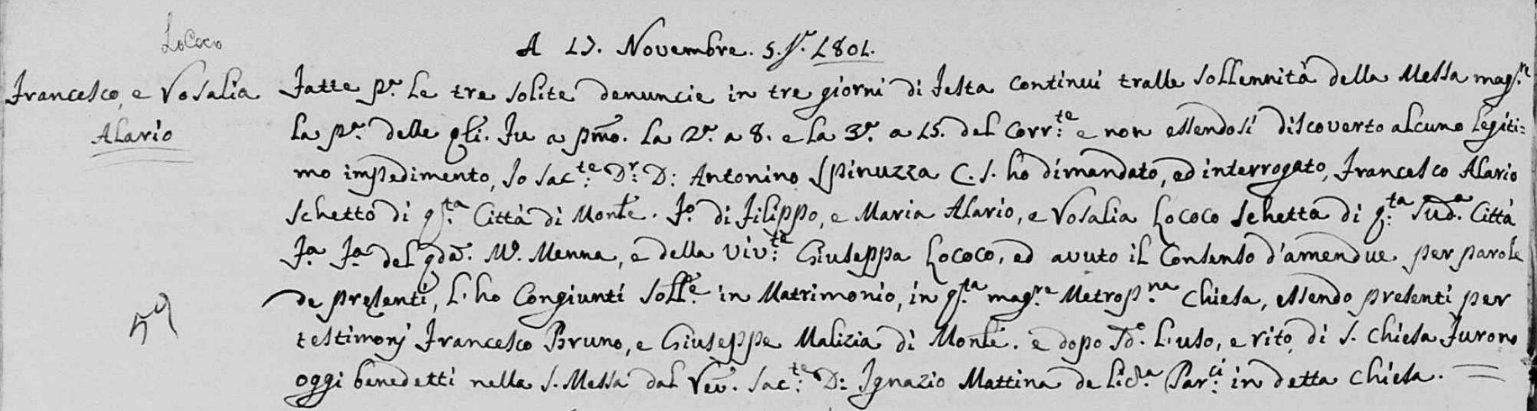 LoCoco
A 17. Novembre. 5. I.ⁿᵉ 1801.
Francesco, e Rosalia
Alario
Fatte p.ᵃ le tre solite denuncie in tre giorni di festa continui tralle sollennità della Messa mag.ʳᵉ
la p.ᵃ delle q̃li. fu a pm̃o. la 2.ᵃ a 8. e la 3.ᵃ a 15. del corr.ᵗᵉ e non essendosi discoverto alcuno legiti=
mo impedimento, Io Sac.ᵗᵉ D.ʳ D: Antonino Spinuzza C. S. ho dimandato, ed interrogato, Francesco Alario
schetto di q.ˢᵗᵃ Città di Monle. F.º di Filippo, e Maria Alario, e Rosalia Lococo schetta di q.ᵗᵃ sud.ᵃ Città
F.ᵃ del qd̃m. Mʳ. Menna, e della viv.ᵗᵉ Giuseppa Lococo, ed avuto il consenso d'amendue per parole
de presenti, l'ho congiunti soll.ᵉ in Matrimonio, in q.ˢᵗᵃ mag.ʳᵉ Metrop.ⁿᵃ Chiesa, essendo presenti per
testimonj Francesco Bruno, e Giuseppe Malizia di Monle. e dopo s.º l'uso, e rito di S. Chiesa furono
oggi benedetti nella S. Messa dal Rev. Sac.ᵗᵉ D: Ignazio Mattina de lic.ᵃ Par.ᶜⁱ in detta Chiesa.